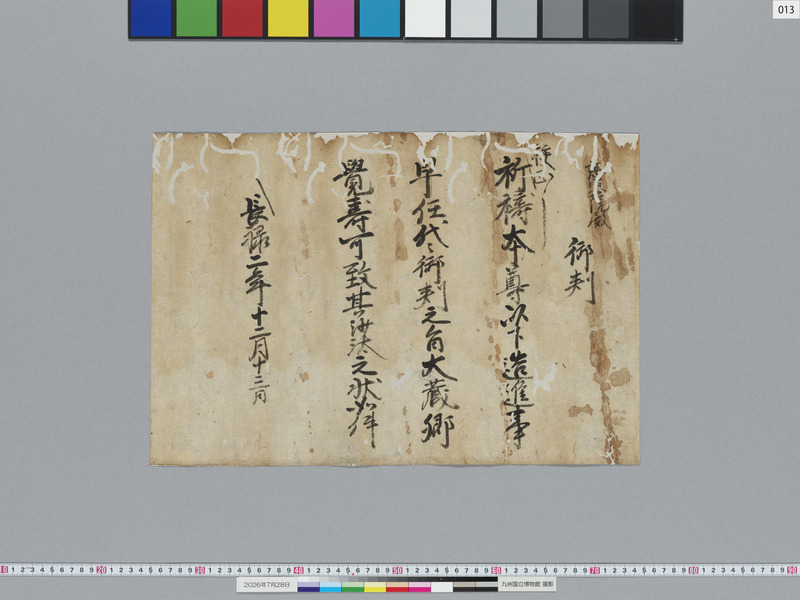 御判
祈禱本尊以下造進事
早任代々御判之旨大蔵卿
覺壽可致其沙汰之状如件
長禄二年十二月十三日
013
2026年7月28日
九州国立博物館 撮影